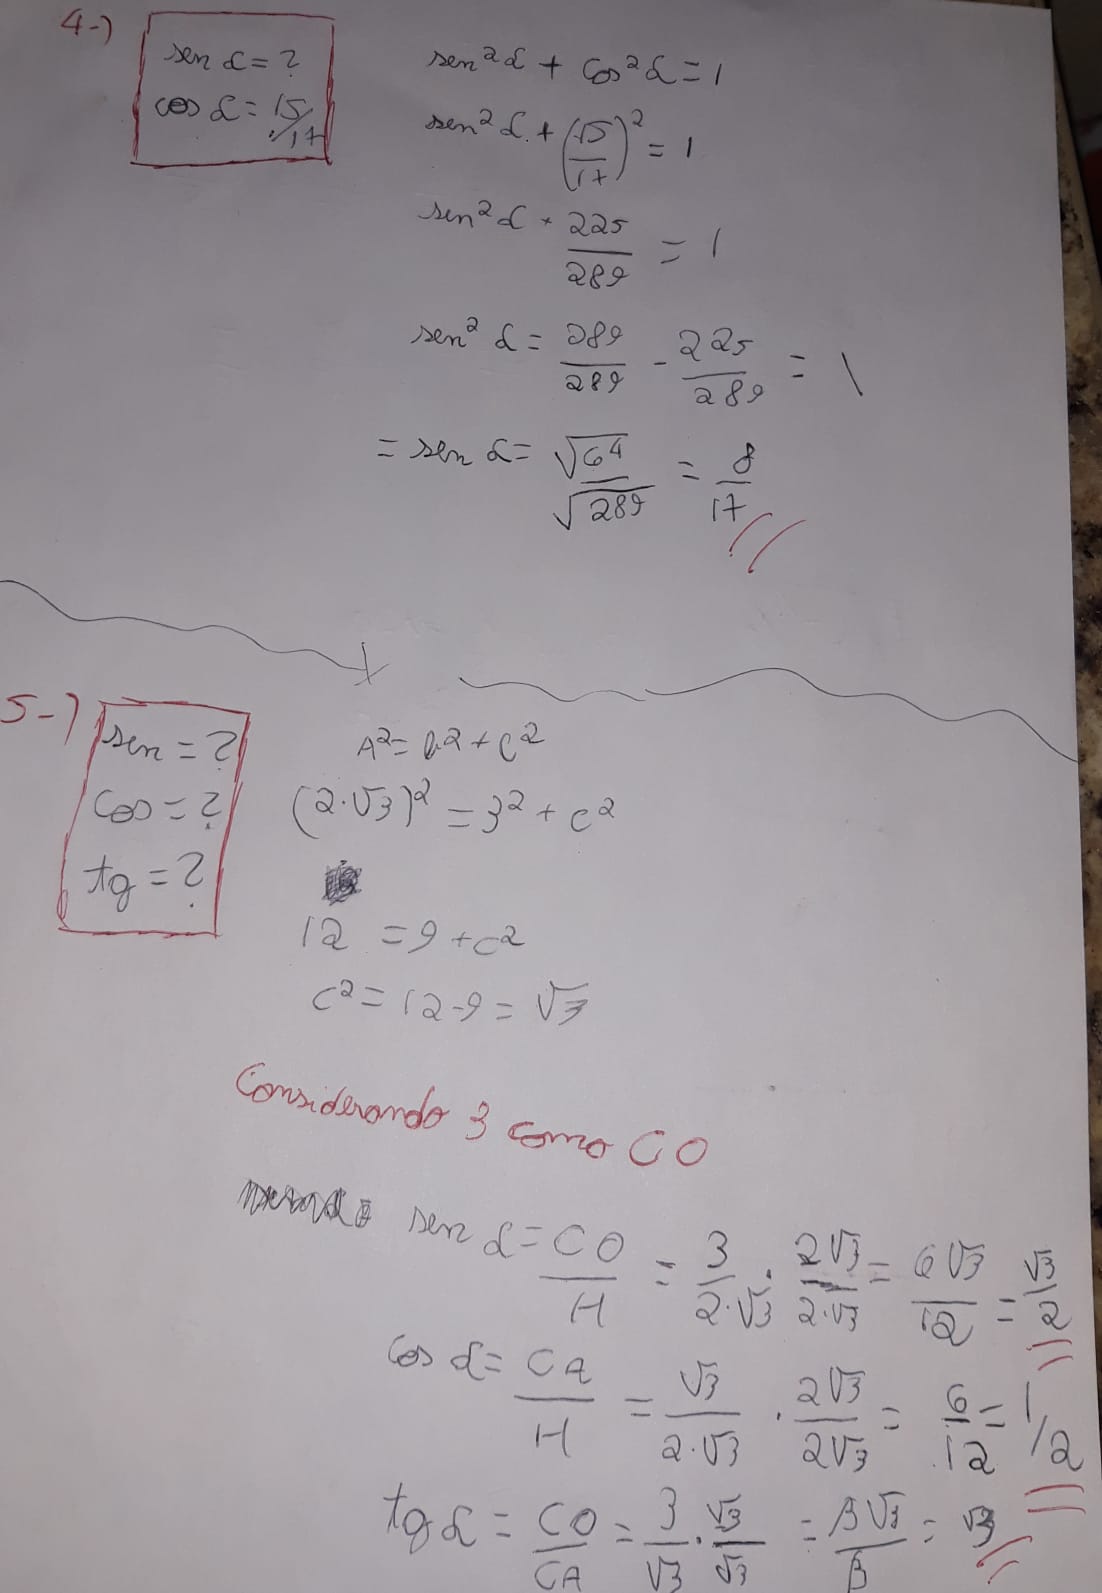 4-)
sen α = ?
cos α = 15/17
sen²α + cos²α = 1
sen²α + (15/17)² = 1
sen²α + 225/289 = 1
sen²α = 289/289 - 225/289 = 1
= sen α = √64/√289 = 8/17
5-)
sen = ?
cos = ?
tg = ?
A² = b² + c²
(2·√3)² = 3² + c²
12 = 9 + c²
c² = 12-9 = √3
Considerando 3 como CO
sen α = CO/H = 3/2·√3 · 2√3/2·√3 = 6√3/12 = √3/2
cos α = CA/H = √3/2·√3 · 2√3/2√3 = 6/12 = 1/2
tg α = CO/CA = 3/√3 · √3/√3 = 3√3/3 = √3